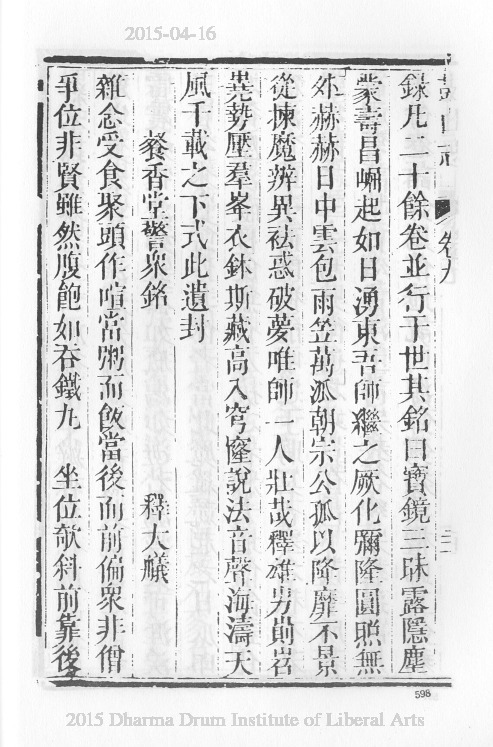 2015-04-16
鼓山志 卷九
錄凡二十餘卷並行于世其銘曰寶鏡三昧露隱塵
蒙壽昌崛起如日湧東吾師繼之厥化彌隆圓照無
外赫赫日中雲包雨笠萬派朝宗公孤以降靡不景
從揀魔辨異袪惑破夢唯師一人壯哉釋雄屴崱岧
嶤勢壓羣峯衣鉢斯藏高入穹窿說法音聲海濤天
風千載之下式此遺封
餐香堂警衆銘 釋大艤
雜念受食聚頭作喧當粥而飯當後而前偏衆非僧
爭位非賢雖然腹飽如吞鐵九 坐位欹斜前靠後
598
2015 Dharma Drum Institute of Liberal Arts